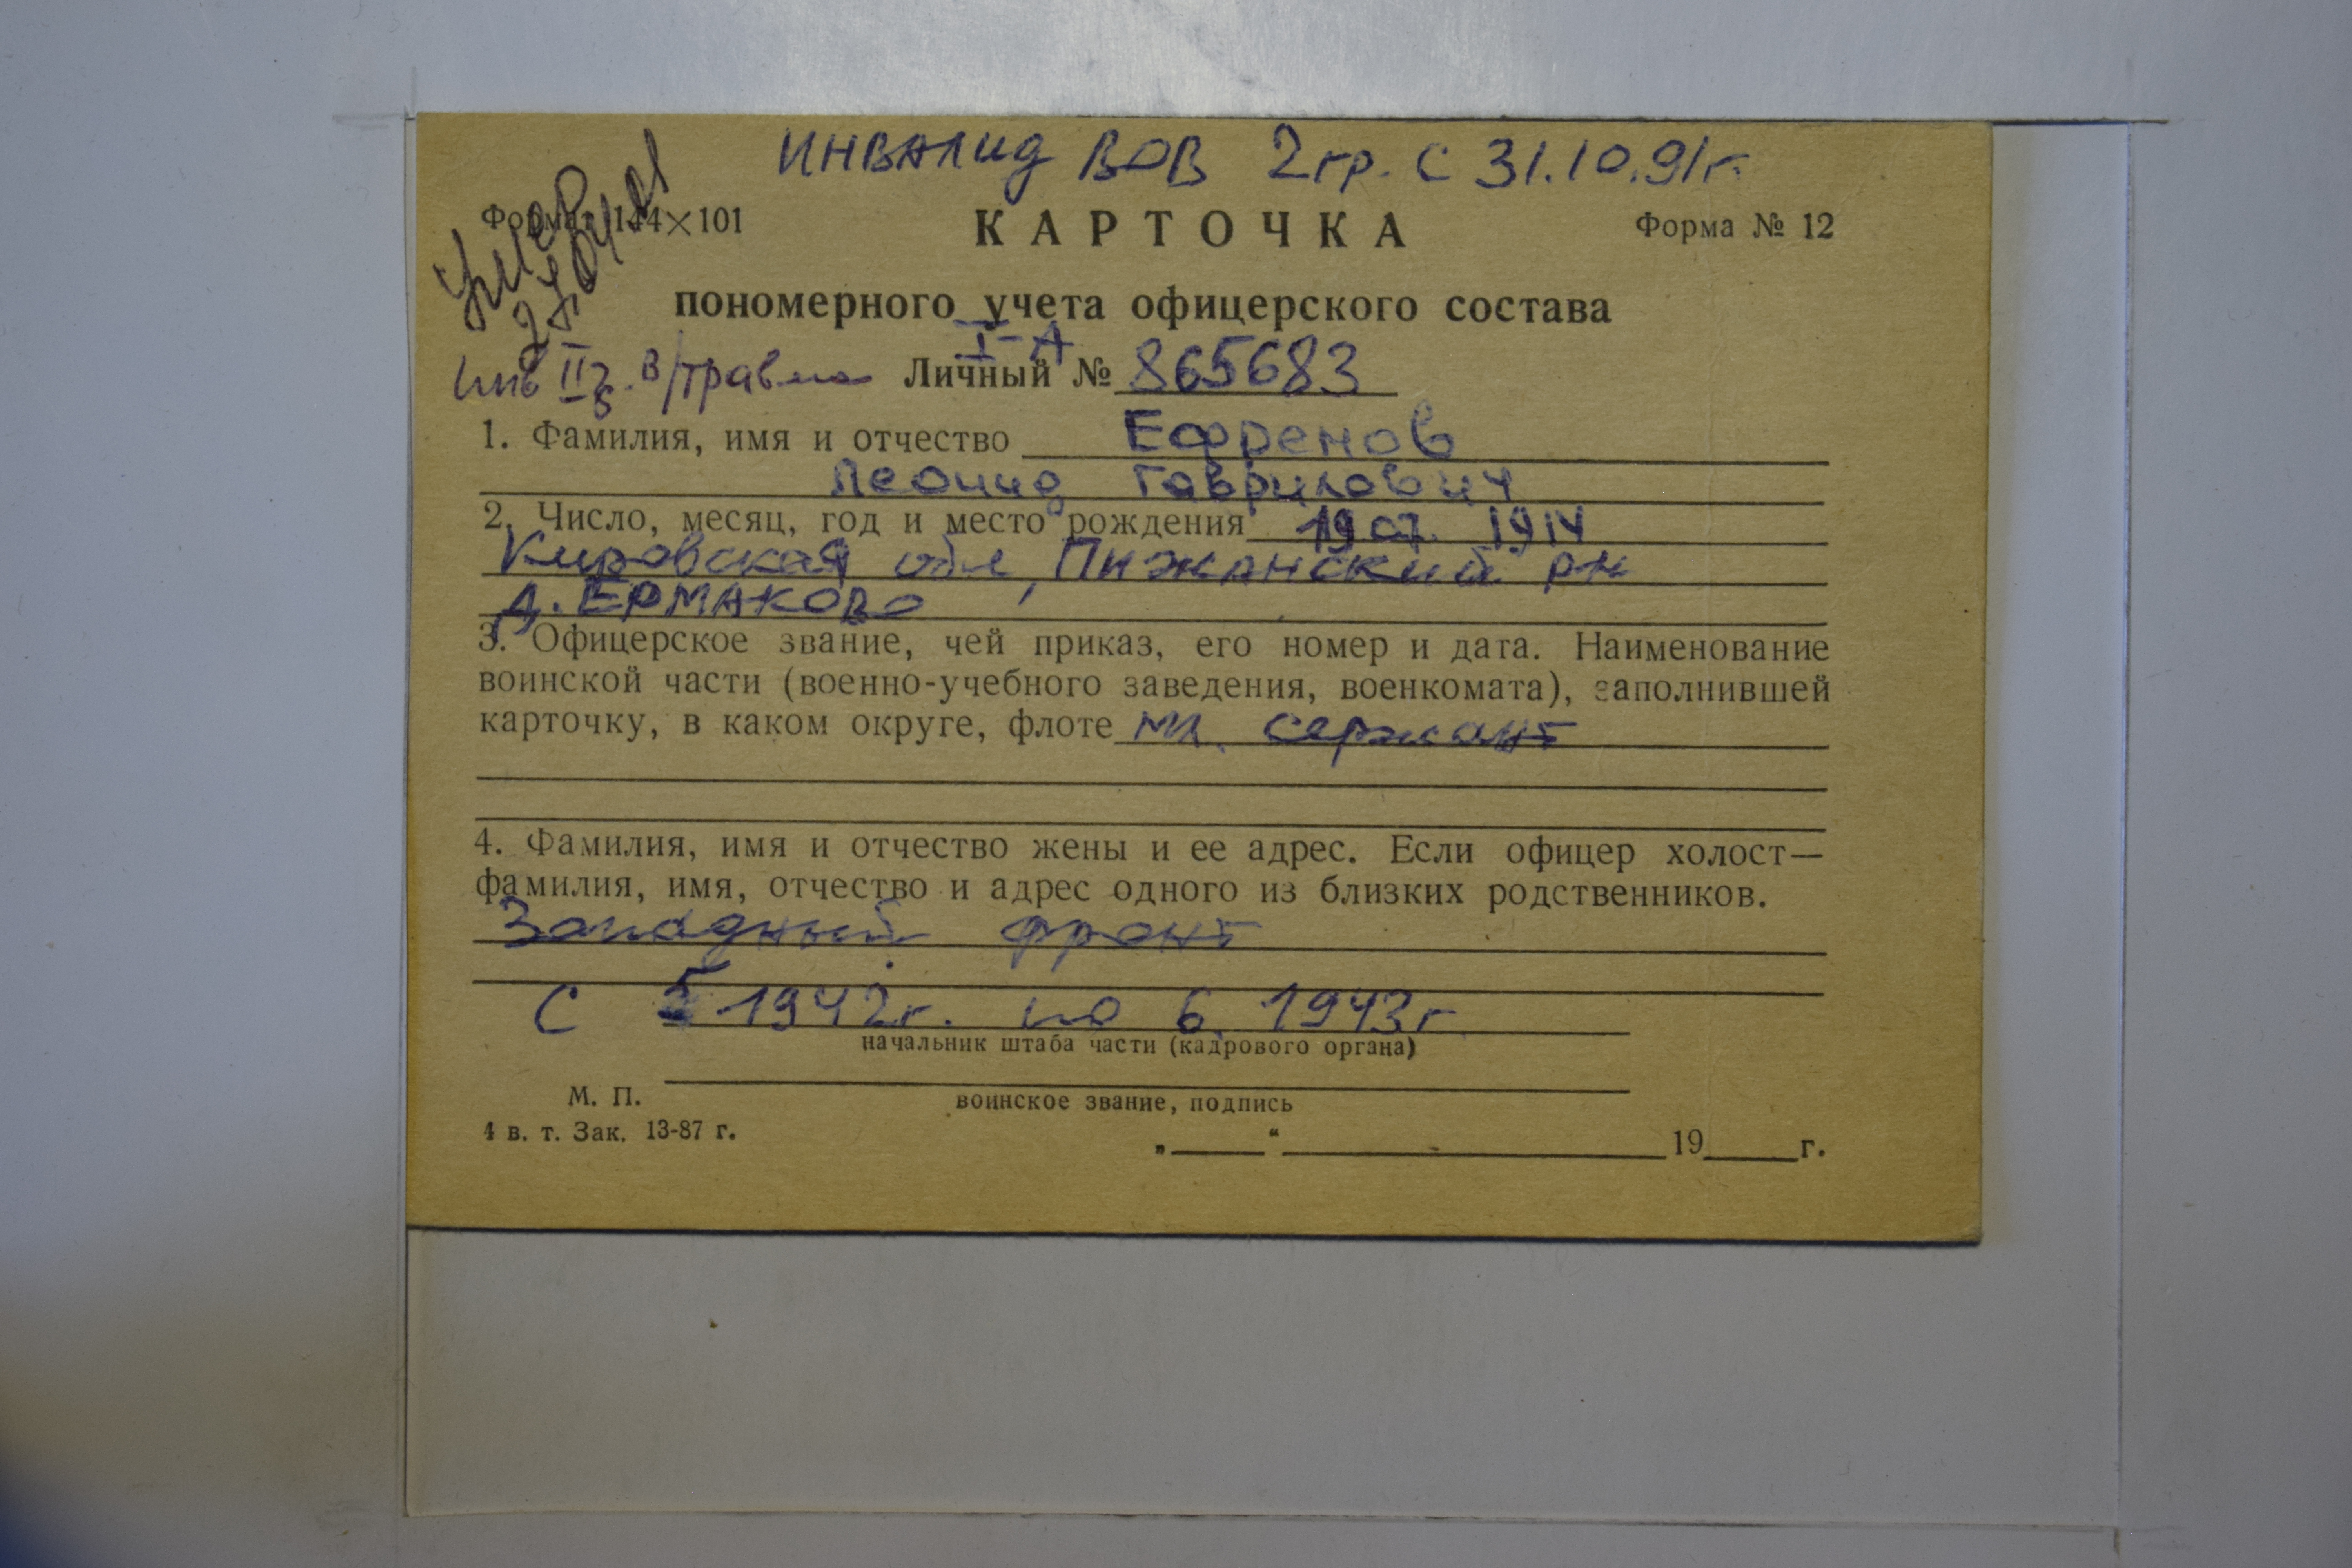 ИНВАЛИД ВОВ 2гр. с 31.10.91г.
Умер
Формат 144×101
КАРТОЧКА
Форма № 12
пономерного учета офицерского состава
I-А
инв IIг. в/травма
Личный № 865683
1. Фамилия, имя и отчество Ефремов
Леонид Гаврилович
2. Число, месяц, год и место рождения 19 07. 1914
Кировская обл, Пижанский рн
д. ЕРМАКОВО
3. Офицерское звание, чей приказ, его номер и дата. Наименование
воинской части (военно-учебного заведения, военкомата), заполнившей
карточку, в каком округе, флоте мл. сержант
4. Фамилия, имя и отчество жены и ее адрес. Если офицер холост—
фамилия, имя, отчество и адрес одного из близких родственников.
Западный фронт
С 5 1942г. по 6. 1943г
начальник штаба части (кадрового органа)
М. П.
воинское звание, подпись
4 в. т. Зак. 13-87 г.
„ “ 19 г.